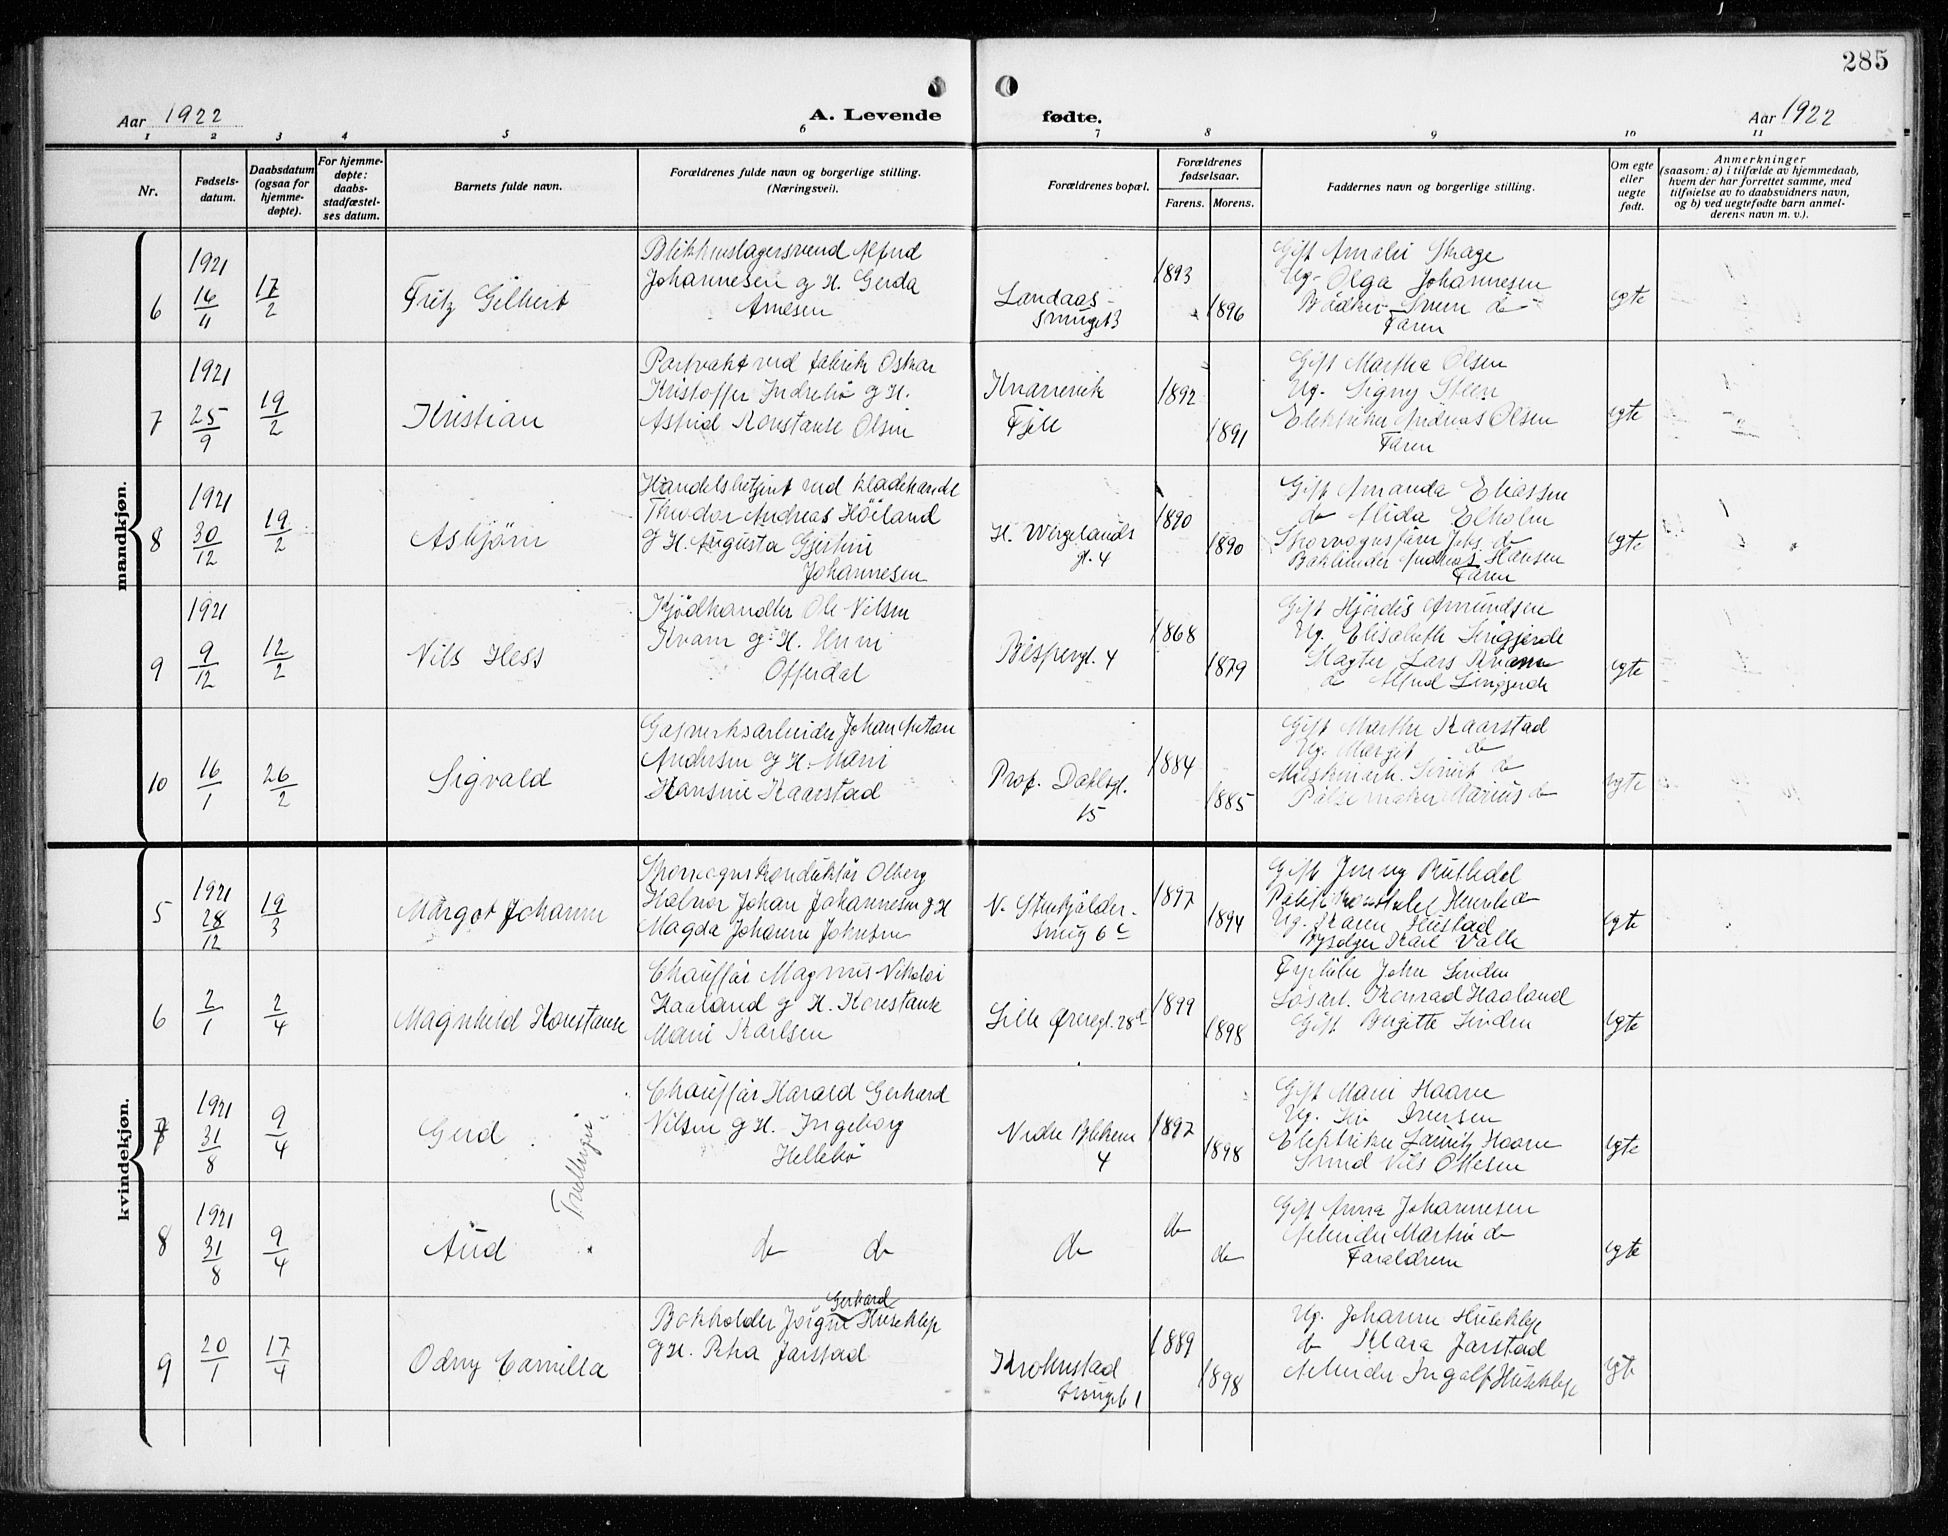 285
Aar 1922
A. Levende
fødte.
Aar 1922
1 2 3 4 5 6 7 8 9 10 11
Nr.
Fødsels-
datum.
Daabsdatum
(ogsaa for
hjemme-
døpte).
For hjemme-
døpte:
daabs-
stadfæstel-
ses datum.
Barnets fulde navn.
Forældrenes fulde navn og borgerlige stilling.
(Næringsvei).
Forældrenes bopæl.
Forældrenes
fødselsaar.
Farens. Morens.
Faddernes navn og borgerlige stilling.
Om egte
eller
uegte
født.
Anmerkninger
(saasom: a) i tilfælde av hjemmedaab,
hvem der har forrettet samme, med
tilføielse av to daabsvidners navn,
og b) ved uegtefødte barn anmel-
derens navn m. v.).
mandkjøn.
6
1921
16/11
17/2
Fritz Gilbert
Blikkenslagersvend Alfred
Johannesen g H. Gerda
Arnesen
Landaas-
smuget 3
1893
1896
Gift Amalie Skage
Ug. Olga Johannesen
Bödker Sven do
Faren
egte
7
1921
25/9
19/2
Kristian
Portvakt ved fabrik Oskar
Kristoffer Indrebö g H.
Astrid Konstanse Olsen
Knarrevik
Fjell
1892
1891
Gift Martha Olsen
Ug. Signy Steen
Elektriker Andreas Olsen
Faren
egte
8
1921
30/12
19/2
Asbjörn
Handelsbetjent ved kladehandel
Theodor Andreas Höiland
g H. Augusta Gjertine
Johannesen
H. Wergelands
gt. 4
1890
1890
Gift Amanda Eliassen
do Alida Ekholm
Sporvognsfører Jak. do
Andreas Hansen
Faren
egte
9
1921
9/12
12/2
Nils Hess
Kjödhandler Ole Nilsen
Kvam g. H.
Offerdal
Bispengt. 4
1868
1879
Gift Hjördis Amundsen
Ug. Elisabeth
Lars Kvam
do Alfred
egte
10
16/1
26/2
Sigvald
Gasverksarbeider Johan Anton
Andersen g H. Marie
Hansine Kaarstad
Prof. Dahlsgt.
15
1884
1885
Gift Marthe Kaarstad
Ug. Margit do
do
Pölsemaker Marius do
egte
kvindekjøn.
5
1921
28/12
19/3
Margot Johanne
Sporvognskonduktör Olberg
Halvor Johan Johannesen g H
Magda Johanne Johnsen
N. Stenkjælder-
smug 6c
1897
1894
Gift Jenny Rutledal
Politikonstabel Henrik do
Ug. Karen Hustad
Karl Valle
egte
6
2/1
2/4
Magnhild Konstanse
Chauffør Magnus Nikolai
Haaland g H. Konstanse
Marie Karlsen
Lille Øvregt. 28d
1899
1898
John Linden
Løsarb. Konrad Haaland
Gift Birgitte Linden
egte
7
1921
31/8
9/4
Gerd
Tvillinger
Chauffør Harald Gerhard
Nilsen g H. Ingeborg
Hellebö
Nedre Blekevei
4
1897
1898
Gift Marie Haave
Ug. Iversen
Elektriker Lauritz Haave
Smed Nils Ottesen
egte
8
1921
31/8
9/4
Aud
do do
do
do
do
Gift Anna Johannesen
Arbeider Martin do
Forældrene
egte
9
20/1
17/4
Odny Camilla
Gerhard
Bokholder Jörgen Huseklep
g H. Petra Jarstad
Krohnstad
smuget 1
1889
1898
Ug. Johanne Huseklep
do Klara Jarstad
Arbeider Ingolf Huseklep
egte